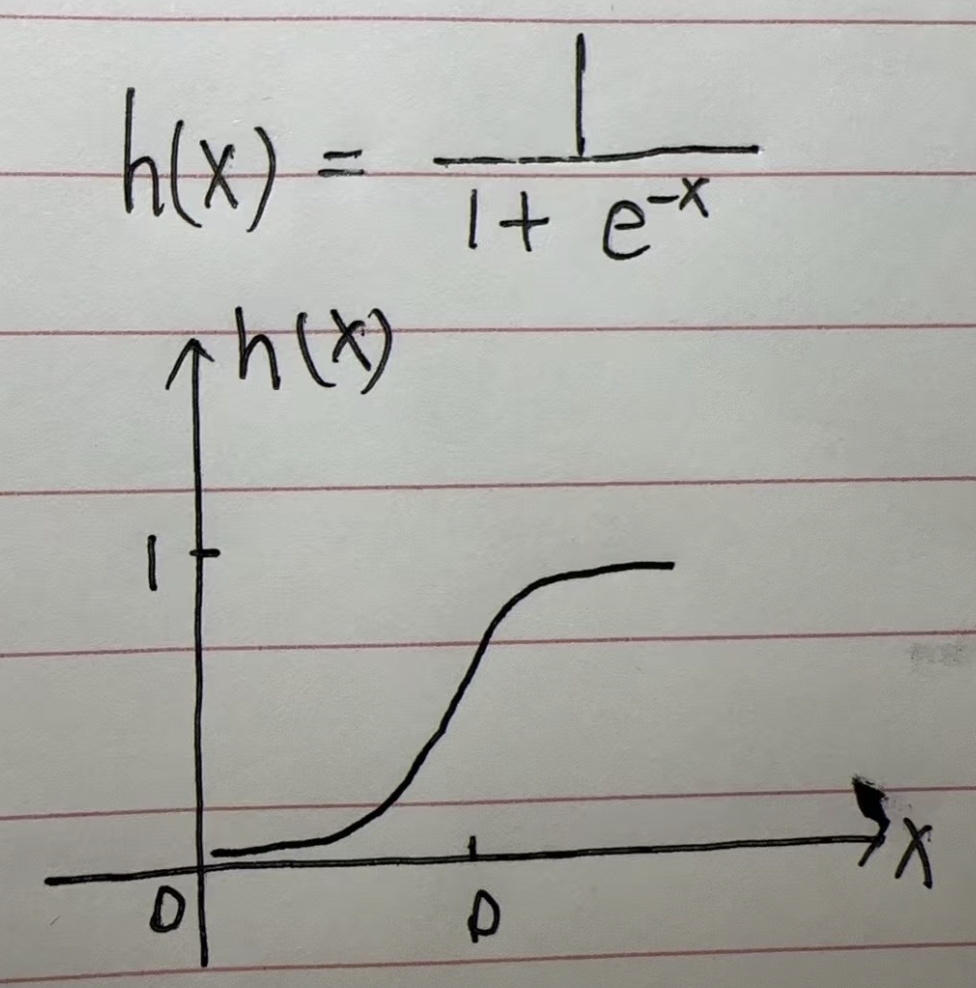 h(x) = 1 / (1 + e^{-x})
h(x)
1
0 0 x